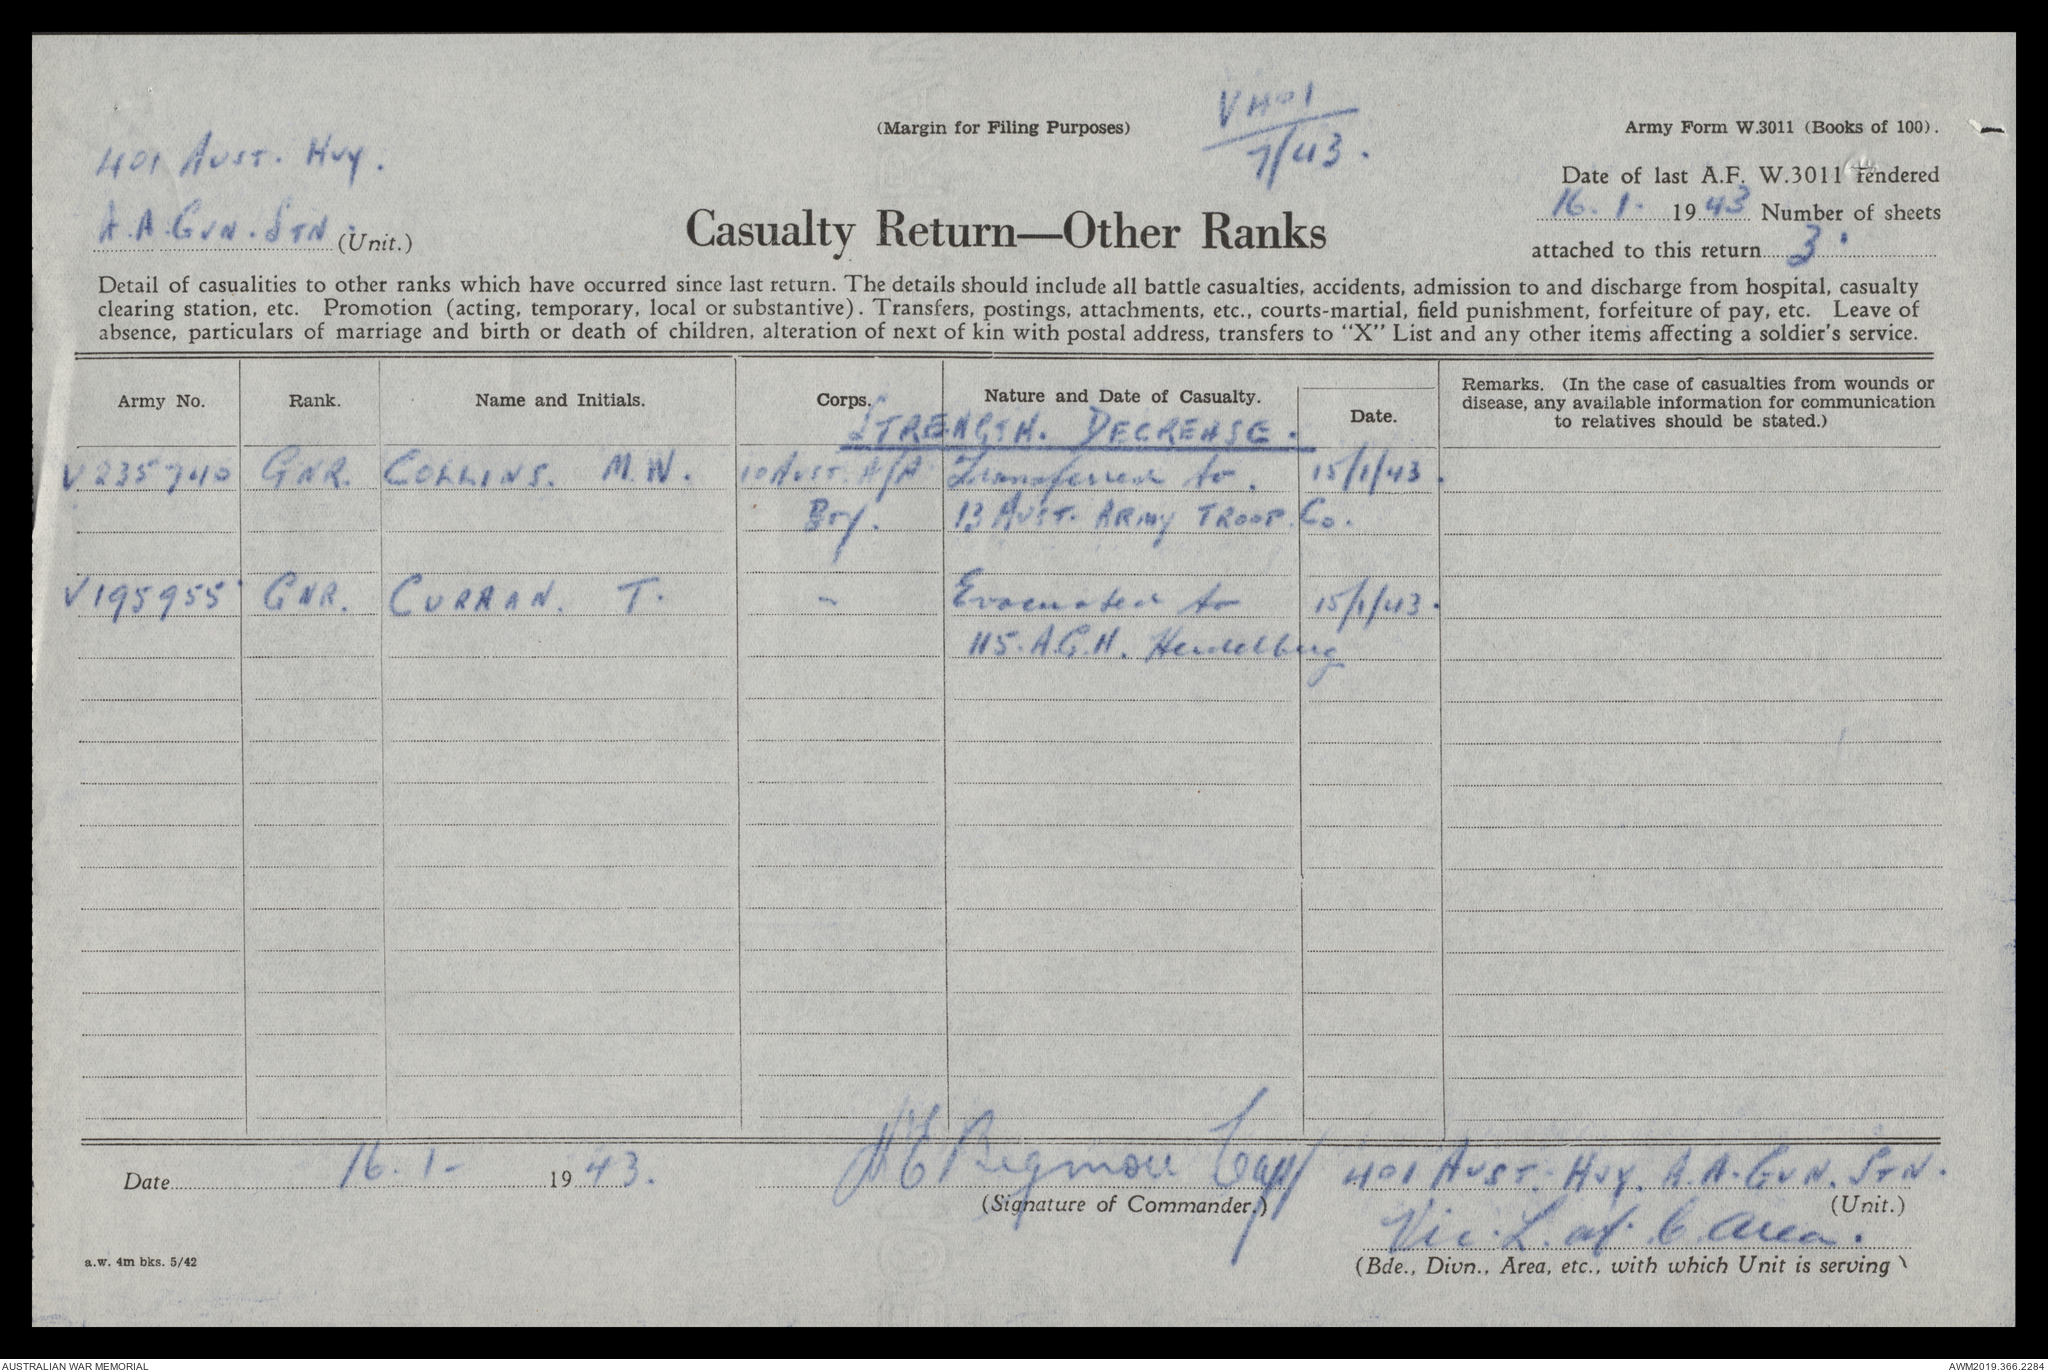 (Margin for Filing Purposes)
VH01
7/43.
Army Form W.3011 (Books of 100).
401 AUST. HVY.
A.A. GUN. STN. (Unit.)
Casualty Return—Other Ranks
Date of last A.F. W.3011 rendered
16. 1. 1943 Number of sheets
attached to this return 3.
Detail of casualities to other ranks which have occurred since last return. The details should include all battle casualties, accidents, admission to and discharge from hospital, casualty
clearing station, etc. Promotion (acting, temporary, local or substantive). Transfers, postings, attachments, etc., courts-martial, field punishment, forfeiture of pay, etc. Leave of
absence, particulars of marriage and birth or death of children, alteration of next of kin with postal address, transfers to "X" List and any other items affecting a soldier's service.
Army No. Rank. Name and Initials. Corps. Nature and Date of Casualty. Date. Remarks. (In the case of casualties from wounds or
disease, any available information for communication
to relatives should be stated.)
STRENGTH. DECREASE.
V235740 GNR. COLLINS. M.W. 10 AUST. A/A Transferred to. 15/1/43.
Bty. 13 AUST. ARMY TROOP. Co.
V195955 GNR. CURRAN. T. - Evacuated to 15/1/43.
115. A.G.H. Heidelberg
Date 16. 1- 1943. Capt 401 AUST. HVY. A.A. GUN. STN.
(Signature of Commander.) (Unit.)
Vic. L. of. C. Area.
a.w. 4m bks. 5/42 (Bde., Divn., Area, etc., with which Unit is serving)
AUSTRALIAN WAR MEMORIAL AWM2019.366.2284